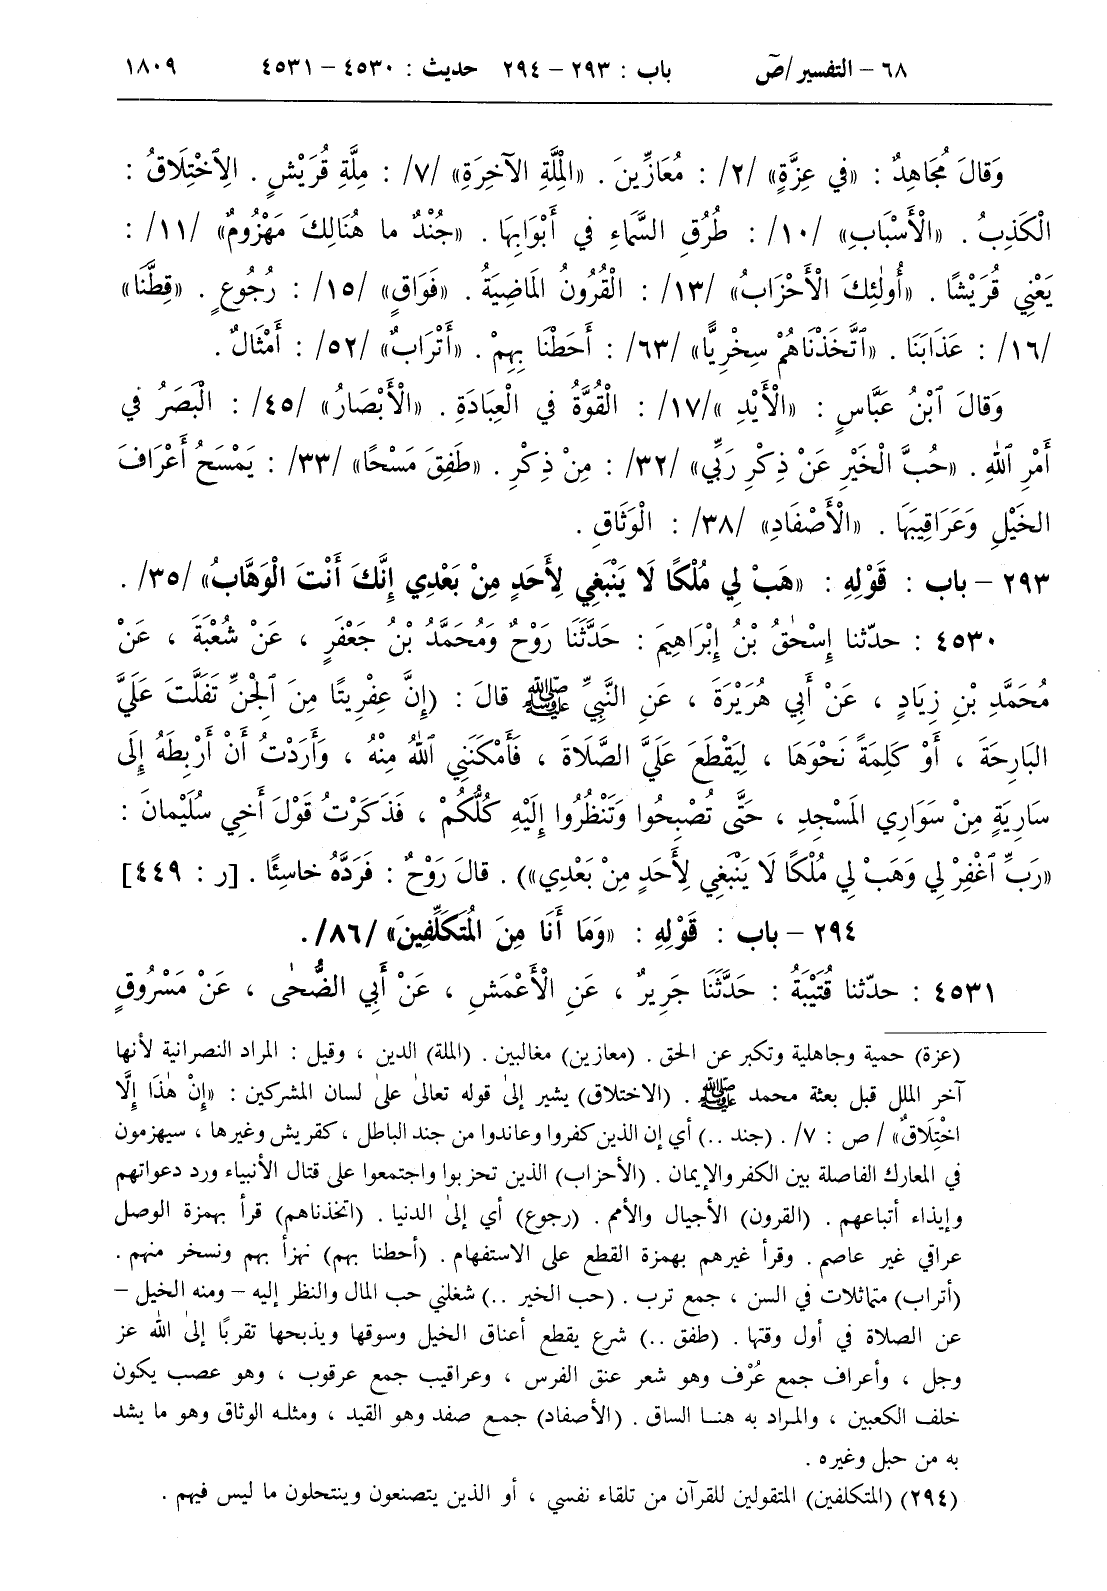 ٦٨ – التفسير/صٓ باب : ٢٩٣ – ٢٩٤ حديث : ٤٥٣٠ – ٤٥٣١ ١٨٠٩
وَقالَ مُجَاهِدٌ : «في عِزَّةٍ» /٢/ : مُعَازِّينَ . «الْمِلَّةِ الآخِرَةِ» /٧/ : مِلَّةِ قُرَيْشٍ . الِٱخْتِلَاقُ :
الْكَذِبُ . «الْأَسْبَابِ» /١٠/ : طُرُقِ السَّمَاءِ في أَبْوَابِهَا . «جُنْدٌ ما هُنَالِكَ مَهْزُومٌ» /١١/ :
يَعْنِي قُرَيْشًا . «أُولٰئِكَ الْأَحْزَابُ» /١٣/ : الْقُرُونُ الْمَاضِيَةُ . «فَوَاقٍ» /١٥/ : رُجُوعٍ . «قِطَّنَا»
/١٦/ : عَذَابَنَا . «ٱتَّخَذْنَاهُمْ سِخْرِيًّا» /٦٣/ : أَحَطْنَا بِهِمْ . «أَتْرَابٌ» /٥٢/ : أَمْثَالٌ .
وَقالَ ٱبْنُ عَبَّاسٍ : «الْأَيْدِ »/١٧/ : الْقُوَّةُ في الْعِبَادَةِ . «الْأَبْصَارُ» /٤٥/ : الْبَصَرُ في
أَمْرِ ٱللهِ . «حُبَّ الْخَيْرِ عَنْ ذِكْرِ رَبِّي» /٣٢/ : مِنْ ذِكْرِ . «طَفِقَ مَسْحًا» /٣٣/ : يَمْسَحُ أَعْرَافَ
الخَيْلِ وَعَرَاقِيبَهَا . «الْأَصْفَادِ» /٣٨/ : الْوَثَاقِ .
٢٩٣ – باب : قَوْلِهِ : «هَبْ لِي مُلْكًا لَا يَنْبَغِي لِأَحَدٍ مِنْ بَعْدِي إِنَّكَ أَنْتَ الْوَهَّابُ» /٣٥/ .
٤٥٣٠ : حدّثنا إِسْحٰقُ بْنُ إِبْرَاهِيمَ : حَدَّثَنَا رَوْحٌ وَمُحَمَّدُ بْنُ جَعْفَرٍ ، عَنْ شُعْبَةَ ، عَنْ
مُحَمَّدِ بْنِ زِيَادٍ ، عَنْ أَبِي هُرَيْرَةَ ، عَنِ النَّبِيِّ ﷺ قالَ : (إِنَّ عِفْرِيتًا مِنَ ٱلْجِنِّ تَفَلَّتَ عَلَيَّ
البَارِحَةَ ، أَوْ كَلِمَةً نَحْوَهَا ، لِيَقْطَعَ عَلَيَّ الصَّلَاةَ ، فَأَمْكَنَنِي ٱللهُ مِنْهُ ، وَأَرَدْتُ أَنْ أَرْبِطَهُ إِلَى
سَارِيَةٍ مِنْ سَوَارِي المَسْجِدِ ، حَتَّى تُصْبِحُوا وَتَنْظُرُوا إِلَيْهِ كُلُّكُمْ ، فَذَكَرْتُ قَوْلَ أَخِي سُلَيْمانَ :
«رَبِّ ٱغْفِرْ لِي وَهَبْ لِي مُلْكًا لَا يَنْبَغِي لِأَحَدٍ مِنْ بَعْدِي») . قالَ رَوْحٌ : فَرَدَّهُ خاسِئًا . [ر : ٤٤٩]
٢٩٤ – باب : قَوْلِهِ : «وَمَا أَنَا مِنَ الْمُتَكَلِّفِينَ» /٨٦/.
٤٥٣١ : حدّثنا قُتَيْبَةُ : حَدَّثَنَا جَرِيرٌ ، عَنِ الْأَعْمَشِ ، عَنْ أَبِي الضُّحٰى ، عَنْ مَسْرُوقٍ
(عزة) حمية وجاهلية وتكبر عن الحق . (معازين) مغالبين . (الملة) الدين ، وقيل : المراد النصرانية لأنها
آخر الملل قبل بعثة محمد ﷺ . (الاختلاق) يشير إلىٰ قوله تعالىٰ علىٰ لسان المشركين : «إِنْ هٰذَا إِلَّا
اخْتِلَاقٌ» / ص : ٧/ . (جند ..) أي إن الذين كفروا وعاندوا من جند الباطل ، كقريش وغيرها ، سيهزمون
في المعارك الفاصلة بين الكفر والإيمان . (الأحزاب) الذين تحزبوا واجتمعوا على قتال الأنبياء ورد دعواتهم
وإيذاء أتباعهم . (القرون) الأجيال والأمم . (رجوع) أي إلىٰ الدنيا . (اتخذناهم) قرأ بهمزة الوصل
عراقي غير عاصم . وقرأ غيرهم بهمزة القطع على الاستفهام . (أحطنا بهم) نهزأ بهم ونسخر منهم .
(أتراب) متماثلات في السن ، جمع ترب . (حب الخير ..) شغلني حب المال والنظر إليه – ومنه الخيل –
عن الصلاة في أول وقتها . (طفق ..) شرع يقطع أعناق الخيل وسوقها ويذبحها تقربًا إلىٰ الله عز
وجل ، وأعراف جمع عُرْف وهو شعر عنق الفرس ، وعراقيب جمع عرقوب ، وهو عصب يكون
خلف الكعبين ، والمراد به هنا الساق . (الأصفاد) جمع صفد وهو القيد ، ومثله الوثاق وهو ما يشد
به من حبل وغيره .
(٢٩٤) (المتكلفين) المتقولين للقرآن من تلقاء نفسي ، أو الذين يتصنعون وينتحلون ما ليس فيهم .